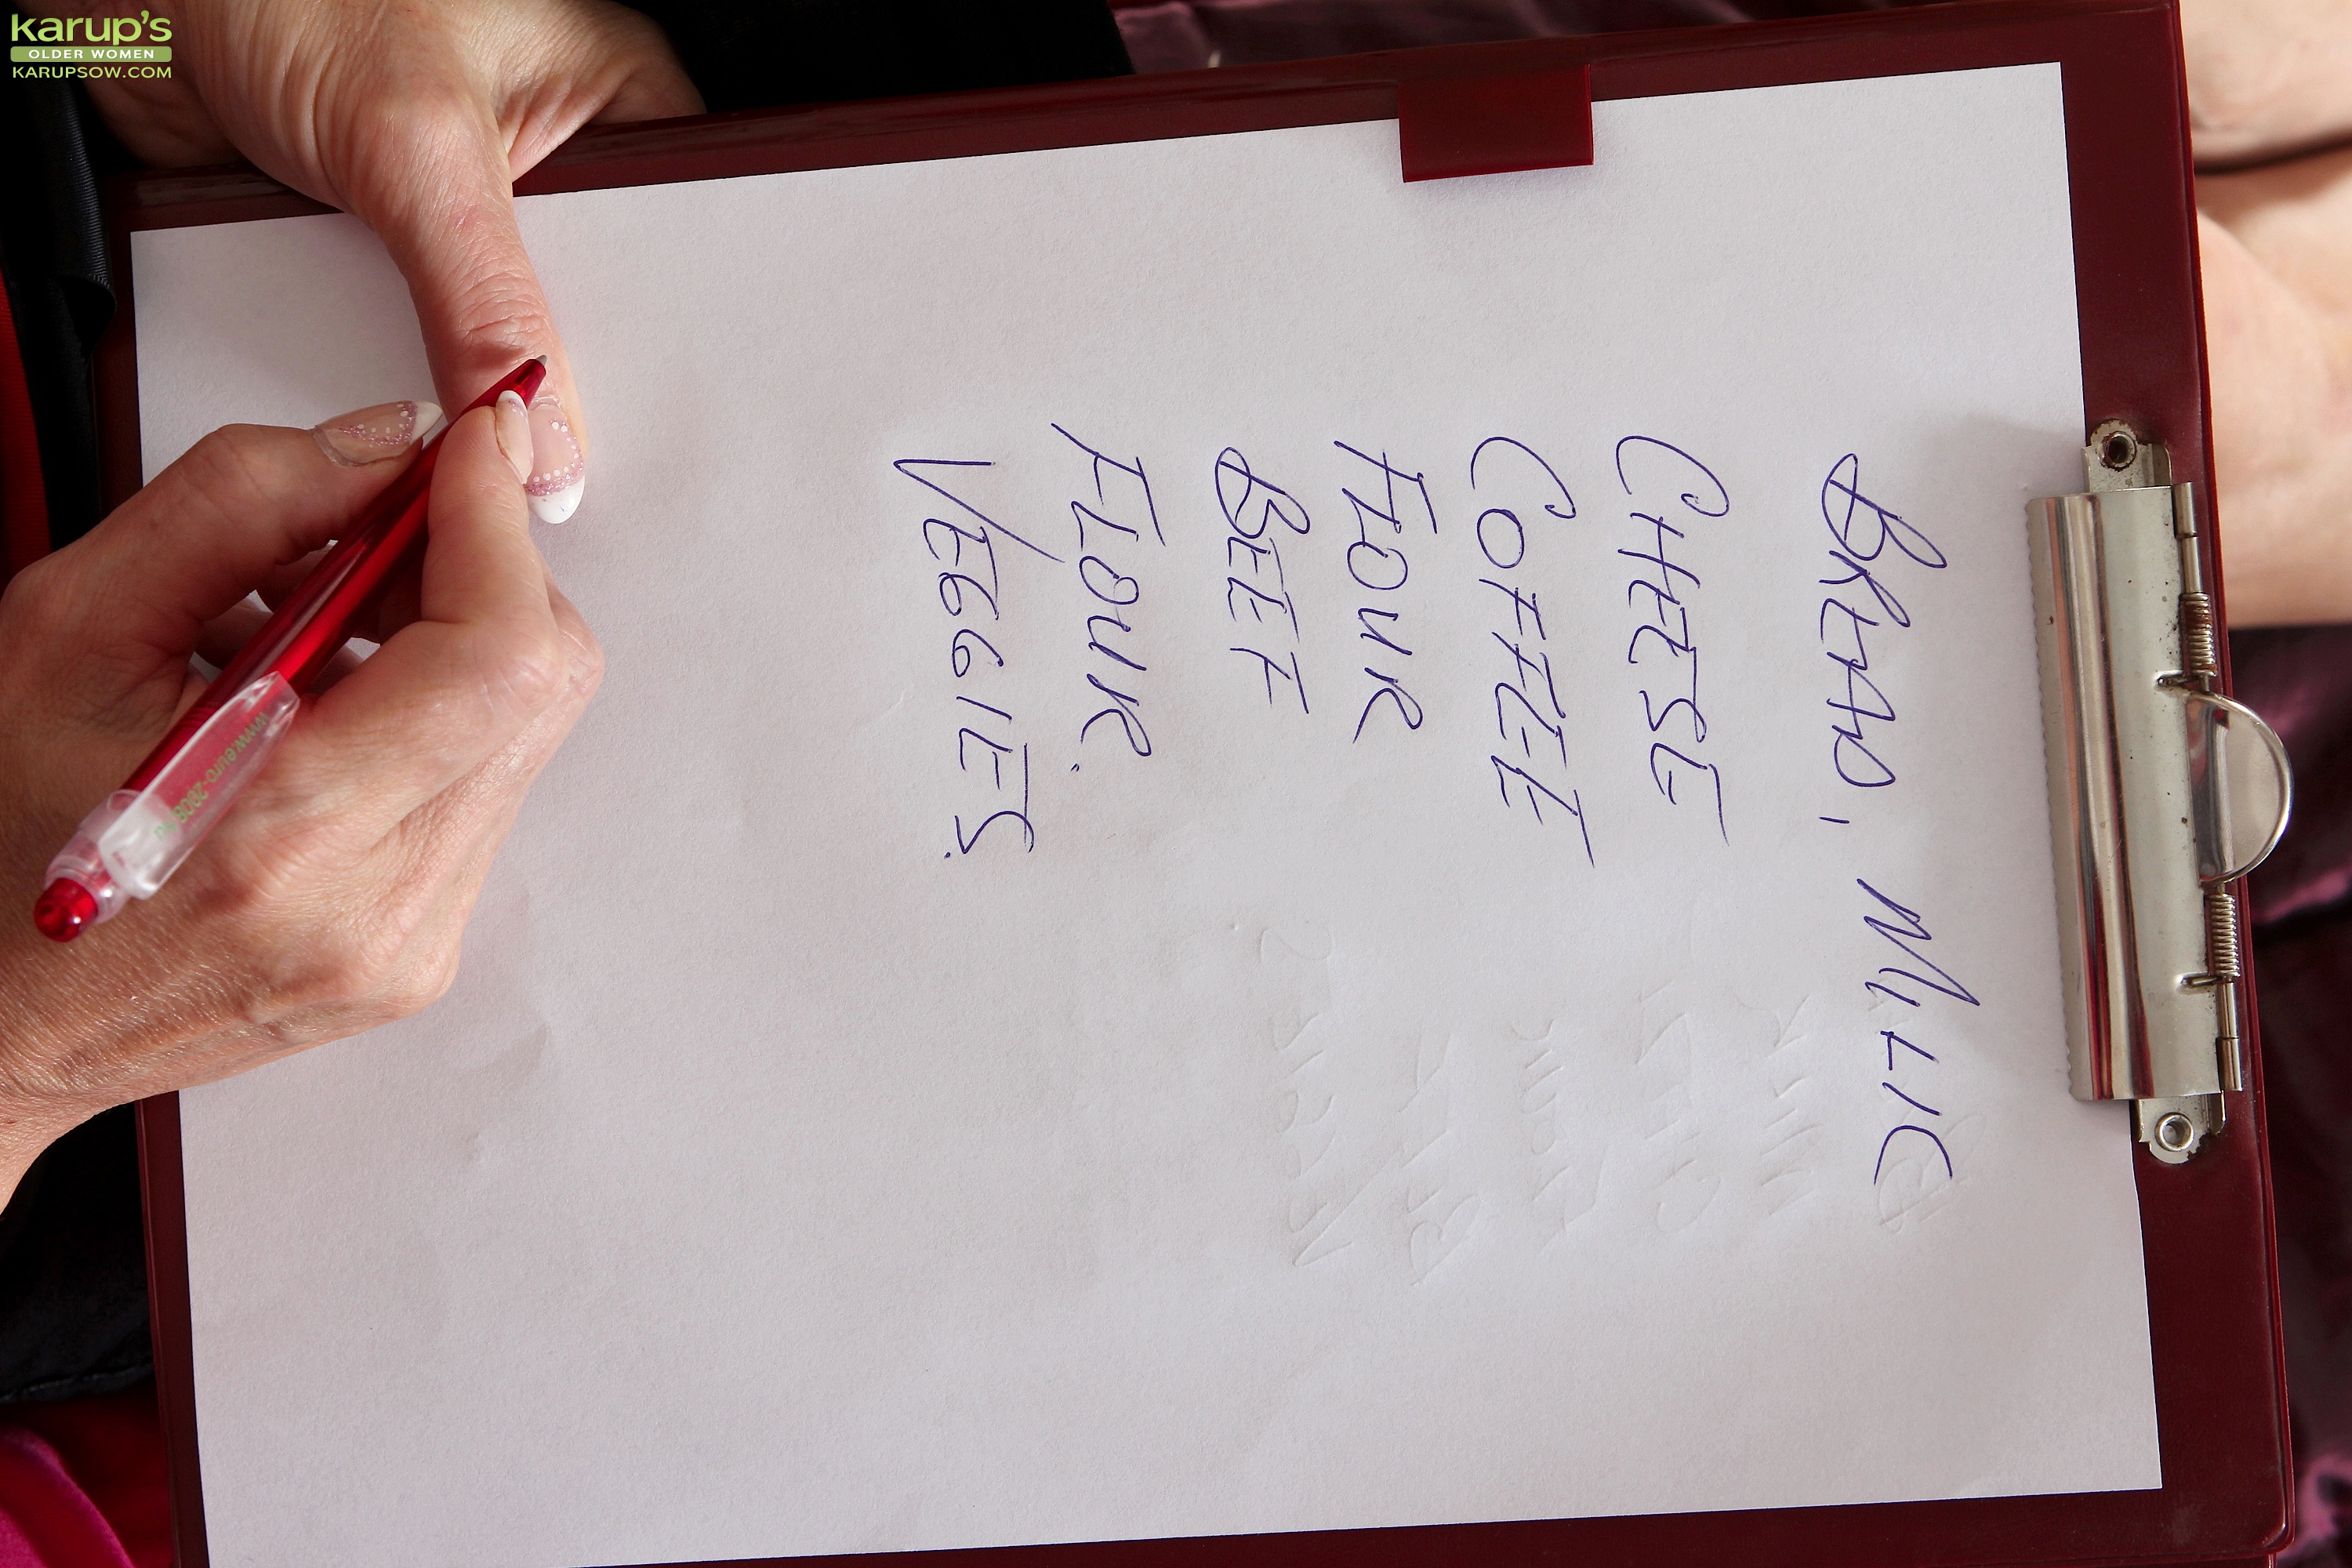 karup's
OLDER WOMEN
KARUPSOW.COM
BREAD, MILK
CHEESE
COFFEE
FLOUR
BEEF
FLOUR.
VEGGIES.